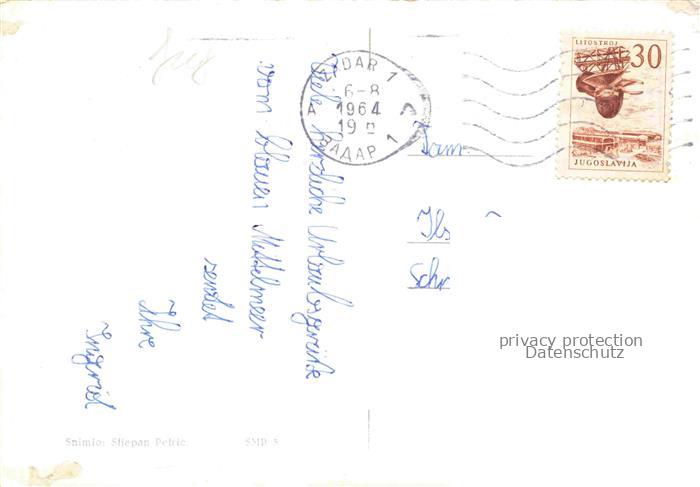 Viele herzliche Urlaubsgrüße
vom blauen Mittelmeer
sendet
Ihre
Ingrid
ZADAR 1
6-8
1964
19
A
ЗАДАР 1
LITOSTROJ
30
JUGOSLAVIJA
Fam.
Ils
Schr
privacy protection
Datenschutz
Snimio: Stjepan Petric
SMP 5